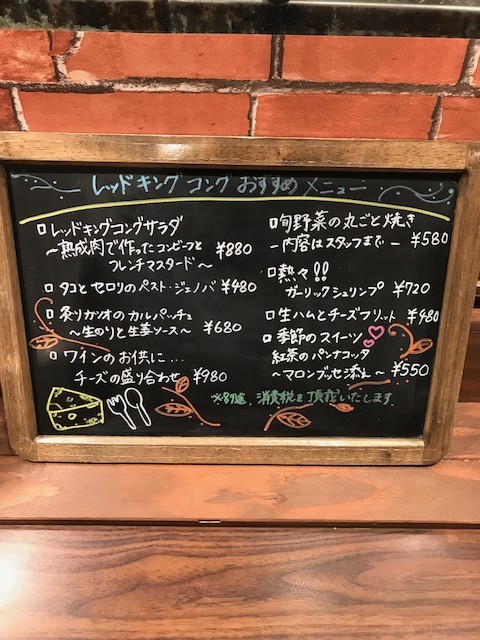 レッドキングコングおすすめメニュー
□レッドキングコングサラダ
～熟成肉で作ったコンビーフと
フレンチマスタード～ ¥880
□タコとセロリのペスト・ジェノバ ¥480
□炙りカツオのカルパッチョ
～生のりと生姜ソース～ ¥680
□ワインのお供に…
チーズの盛り合わせ ¥980
□旬野菜の丸ごと焼き
ー内容はスタッフまでー ¥580
□熱々!!
ガーリックシュリンプ ¥720
□生ハムとチーズフリット ¥480
□季節のスイーツ
紅茶のパンナコッタ
～マロンブッセ添え～ ¥550
※別途、消費税を頂戴いたします